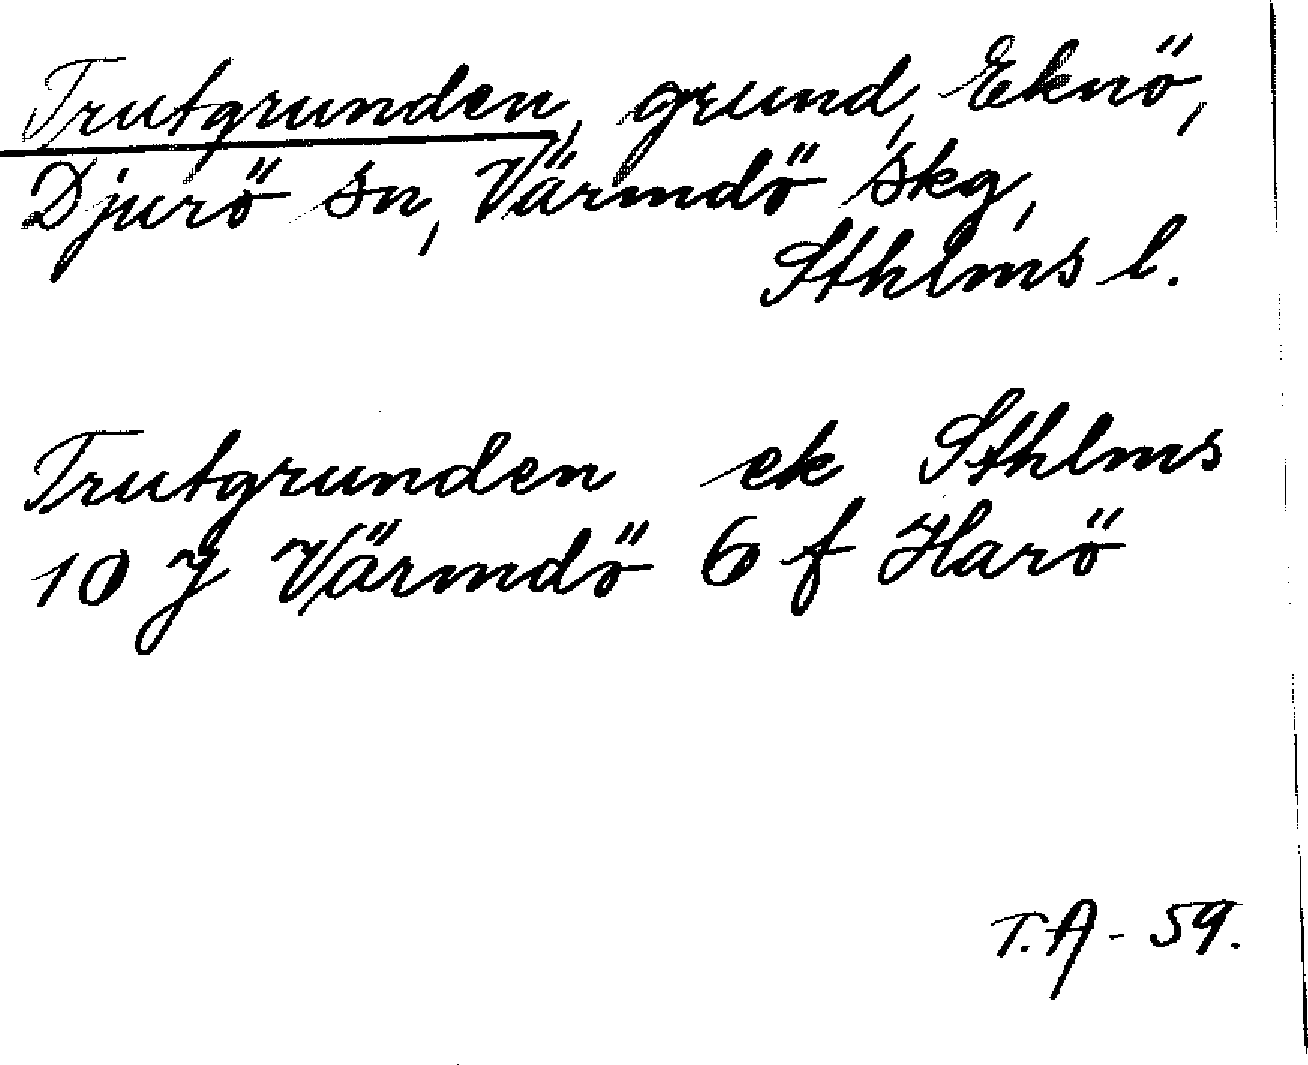 Trutgrunden, grund, Eknö,
Djurö sn, Värmdö skg,
Sthlms l.
Trutgrunden ek Sthlms
10 J Värmdö 6 f Harö
T.A - 59.